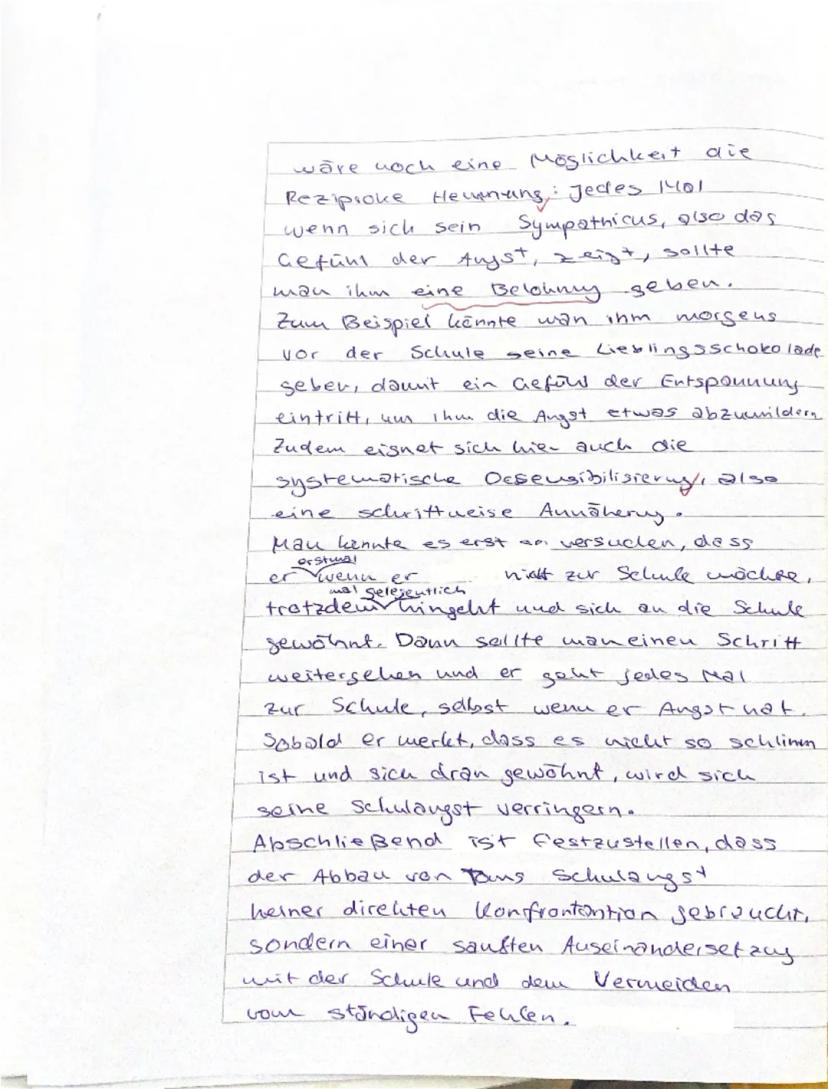 wäre noch eine Möglichkeit die
Reziproke Hemmung: Jedes Mal
wenn sich sein Sympathicus, also das
Gefühl der Angst, zeigt, sollte
man ihm eine Belohnung geben.
Zum Beispiel könnte man ihm morgens
vor der Schule seine Lieblingsschokolade
geben, damit ein Gefühl der Entspannung
eintritt, um ihm die Angst etwas abzumildern
Zudem eignet sich hier auch die
systematische Desensibilisierung, also
eine schrittweise Annäherung.
Man könnte es erst versuchen, dass
erstmal
er wenn er nicht zur Schule möchte,
mal gelegentlich
trotzdem hingeht und sich an die Schule
gewöhnt. Dann sollte man einen Schritt
weitergehen und er geht jedes Mal
zur Schule, selbst wenn er Angst hat.
Sobald er merkt, dass es nicht so schlimm
ist und sich dran gewöhnt, wird sich
seine Schulangst verringern.
Abschließend ist festzustellen, dass
der Abbau von Schulangst
keiner direkten Konfrontantion gebraucht,
sondern einer sanften Auseinandersetzung
mit der Schule und dem Vermeiden
vom ständigen Fehlen.